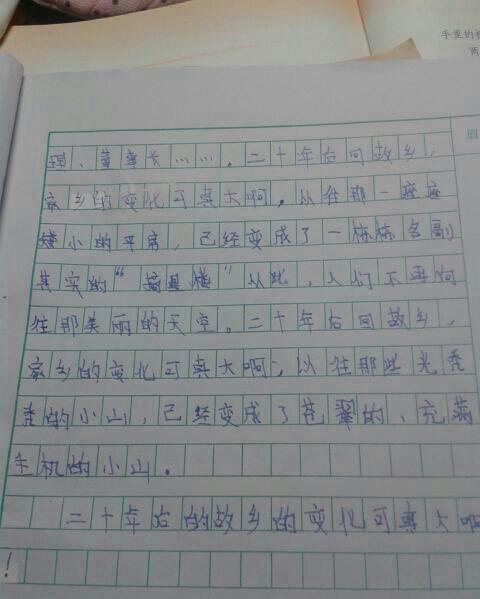 手里的
两
眉
理、董事长……。二十年后回故乡，
家乡的变化可真大啊。以往那一座座
矮小的平房，已经变成了一栋栋名副
其实的“摘星楼”从此，人们不再向
往那美丽的天空。二十年后回故乡，
家乡的变化可真大啊；以往那些光秃
秃的小山，已经变成了苍翼的、充满
生机的小山。
二十年后的故乡的变化可真大啊
！